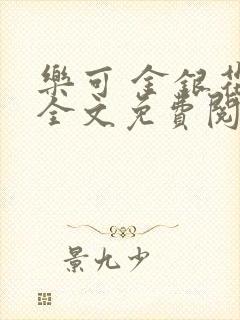 樂可 金銀花
全文免費閱
景九少